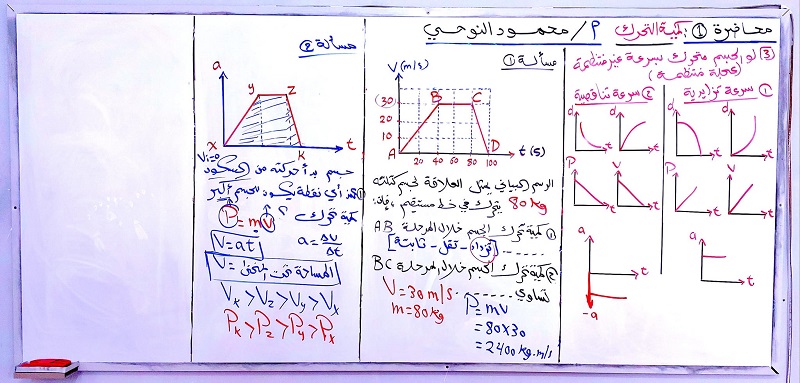 محاضرة ① : كمية التحرك م/ محمود النوحي
③ لو الجسم متحرك بسرعة غير منتظمة
(عجلة منتظمة)
① سرعة تزايدية
② سرعة تناقصية
d
t
d
t
d
t
d
t
V
t
P
t
V
t
P
t
a
t
a
t
-a
مسألة ①
V (m/s)
(30)
20
10
A
B
C
D
20 40 60 80 100
t (s)
الرسم البياني يمثل العلاقة لجسم كتلته
80 kg يتحرك في خط مستقيم، فإن:
① كمية تحرك الجسم خلال المرحلة AB
[تزداد - تقل - ثابتة]
② كمية تحرك الجسم خلال المرحلة BC
تساوي ..........
V = 30 m/s
m = 80 kg
P = mV
= 80 x 30
= 2400 kg.m/s
مسألة ②
a
y
z
x
k
t
Vi = 0
جسم بدأ حركته من السكون
① عند أي نقطة يكون للجسم أكبر
كمية تحرك ؟
P = mV
V = at
a = ΔV/Δt
المساحة تحت المنحنى = V
Vk > Vz > Vy > Vx
Pk > Pz > Py > Px